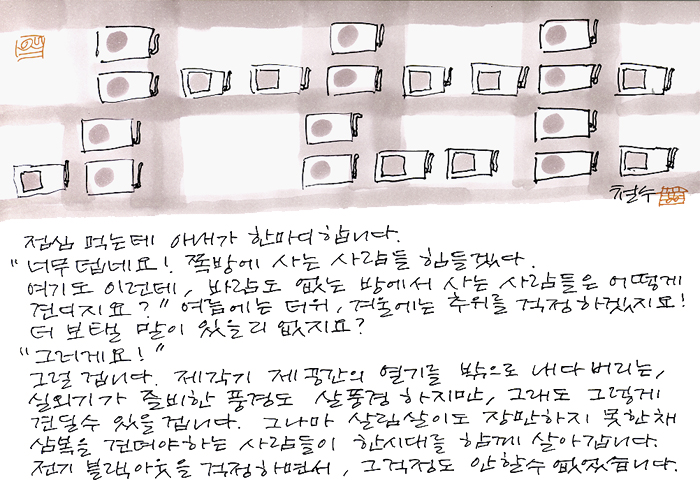 철수
점심 먹는데 아내가 한마디 합니다.
"너무 덥네요! 쪽방에 사는 사람들 힘들겠다.
여기도 이런데, 바람도 없는 방에서 사는 사람들은 어떻게
견디지요?" 여름에는 더위, 겨울에는 추위를 걱정하겠지요!
더 보탤 말이 있을리 없지요?
"그러게요!"
그럴 겁니다. 제각기 제 공간의 열기를 밖으로 내다 버리는,
실외기가 즐비한 풍경도 살풍경 하지만, 그래도 그렇게
견딜수 있을겁니다. 그나마 살림살이도 장만하지 못한채
삼복을 견뎌야하는 사람들이 한시대를 함께 살아갑니다.
전기 블랙아웃을 걱정하면서, 그걱정도 안할수 없겠습니다.